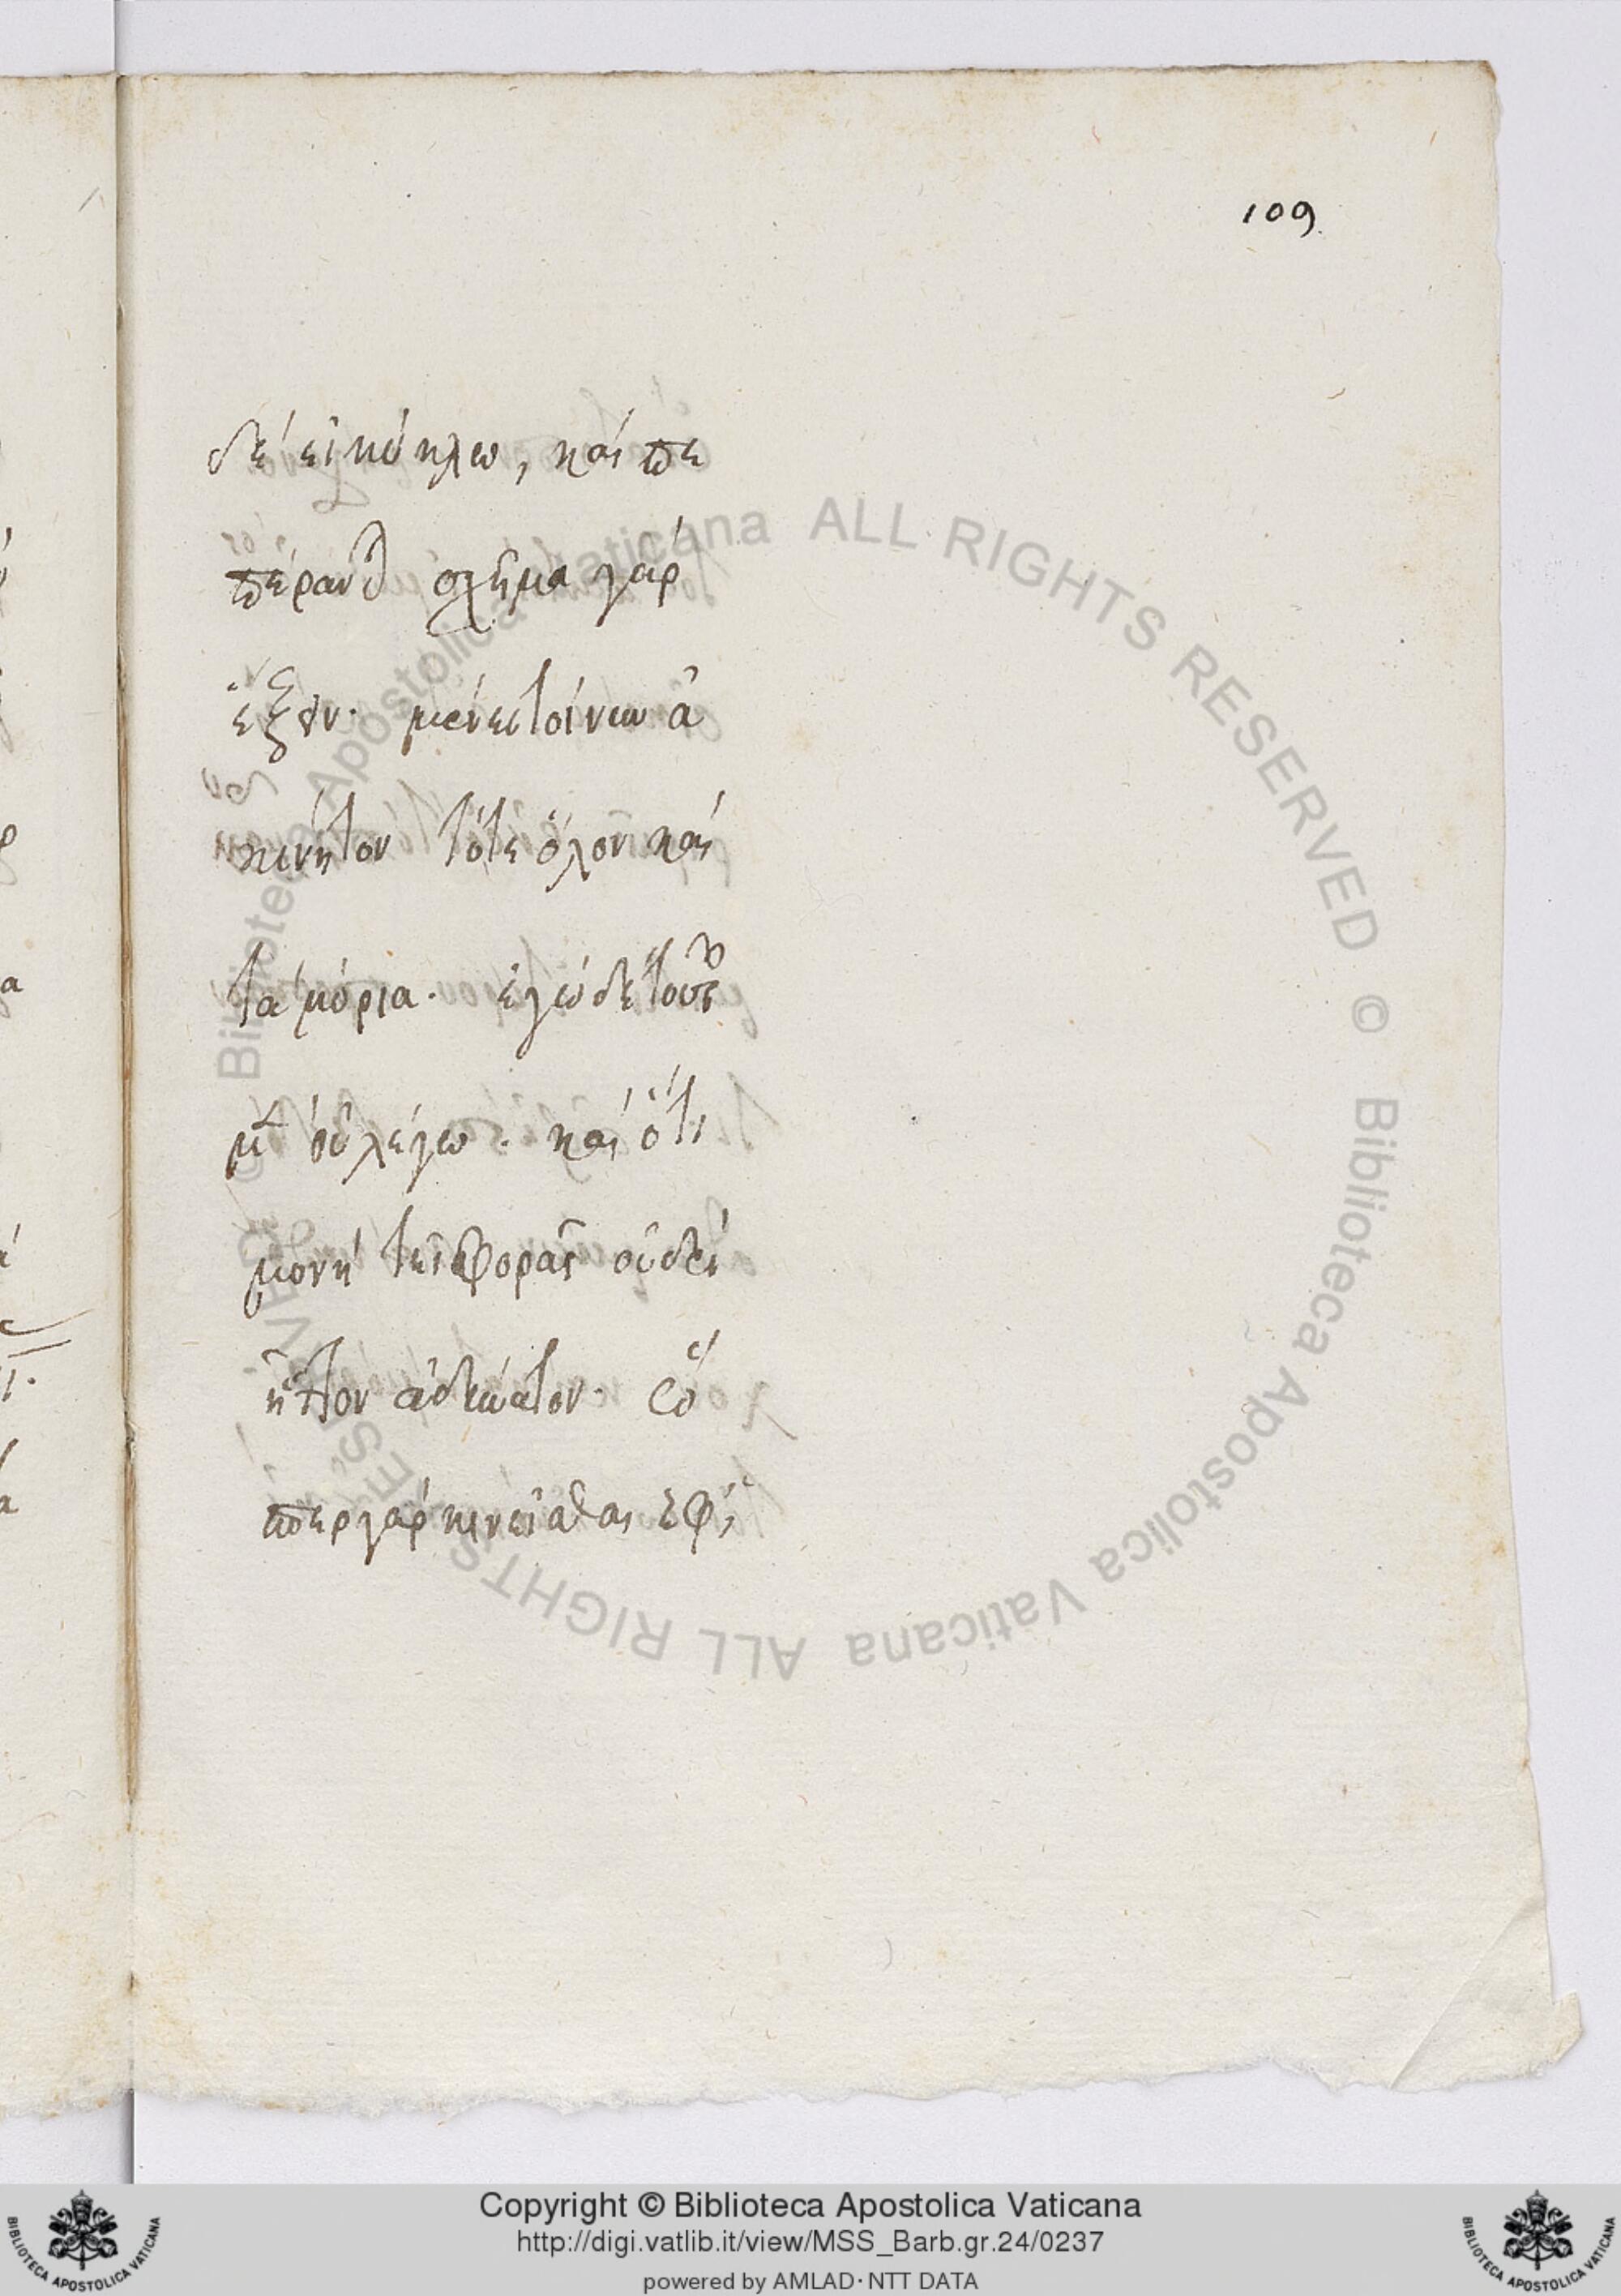 109.
δέ εἰ κύκλω, καὶ πε
πέρανθ σχῆμα γάρ
ἕξειν. μενεῖ τοίνυν ἀ
κινητον τότε ὅλον καὶ
τὰ μόρια. ἐγὼ δὲ τοῦ
οὐ λέγω. καὶ ὅτι
μονὴ τῆς φορᾶς οὐδὲν
ἧττον ἀδύνατον.
περ γὰρ κινεῖσθαι ἐφ'
© Biblioteca Apostolica Vaticana ALL RIGHTS RESERVED © Biblioteca Apostolica Vaticana ALL RIGHTS RESERVED
Copyright © Biblioteca Apostolica Vaticana
http://digi.vatlib.it/view/MSS_Barb.gr.24/0237
powered by AMLAD·NTT DATA
BIBLIOTECA APOSTOLICA VATICANA
BIBLIOTECA APOSTOLICA VATICANA